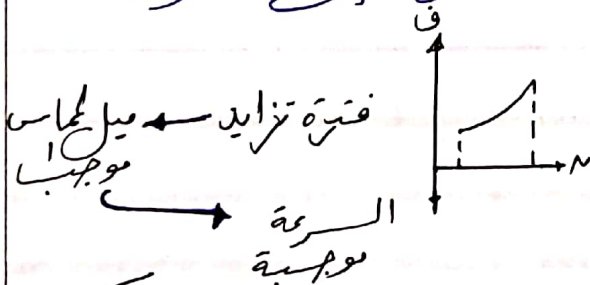 ف
فترة تزايد ← ميل المماس
موجب
السرعة
موجبة
ن